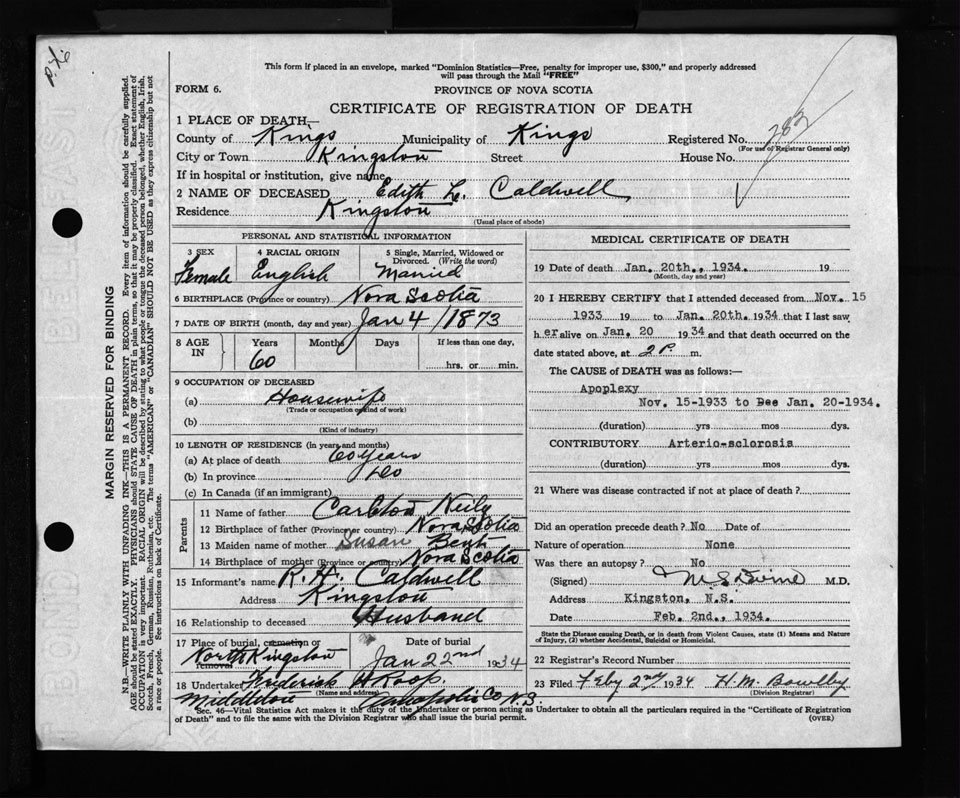 P.X.
This form if placed in an envelope, marked "Dominion Statistics—Free, penalty for improper use, $300," and properly addressed
will pass through the Mail "FREE"
FORM 6.
PROVINCE OF NOVA SCOTIA
CERTIFICATE OF REGISTRATION OF DEATH
1 PLACE OF DEATH—
County of Kings Municipality of Kings Registered No. 283
(For use of Registrar General only)
City or Town Kingston Street House No.
If in hospital or institution, give name
2 NAME OF DECEASED Edith L. Caldwell
Residence Kingston
(Usual place of abode)
PERSONAL AND STATISTICAL INFORMATION
3 SEX 4 RACIAL ORIGIN 5 Single, Married, Widowed or
Divorced. (Write the word)
Female English Married
6 BIRTHPLACE (Province or country) Nova Scotia
7 DATE OF BIRTH (month, day and year) Jan 4/1873
8 AGE IN Years Months Days If less than one day,
60 hrs. or min.
9 OCCUPATION OF DECEASED
(a) Housewife
(Trade or occupation or kind of work)
(b)
(Kind of industry)
10 LENGTH OF RESIDENCE (in years and months)
(a) At place of death 60 years
(b) In province do
(c) In Canada (if an immigrant)
Parents
11 Name of father Carlton Neily
12 Birthplace of father (Province or country) Nova Scotia
13 Maiden name of mother Susan Bent
14 Birthplace of mother (Province or country) Nova Scotia
15 Informant's name R. H. Caldwell
Address Kingston
16 Relationship to deceased Husband
17 Place of burial, cremation or removal Date of burial
North Kingston Jan 22nd 1934
18 Undertaker Frederick W Roop.
(Name and address)
Middleton Annapolis Co N.S.
MEDICAL CERTIFICATE OF DEATH
19 Date of death Jan. 20th., 1934. 19
(Month, day and year)
20 I HEREBY CERTIFY that I attended deceased from Nov. 15
1933 19 to Jan. 20th. 1934 that I last saw
her alive on Jan. 20 1934 and that death occurred on
date stated above, at 2 P. m.
The CAUSE of DEATH was as follows:—
Apoplexy
Nov. 15-1933 to Dec Jan. 20-1934.
(duration) yrs mos dys.
CONTRIBUTORY Arterio-sclorosis
(duration) yrs mos dys.
21 Where was disease contracted if not at place of death?
Did an operation precede death? No Date of
Nature of operation None
Was there an autopsy? No
(Signed) M.D.
Address Kingston, N.S.
Date Feb. 2nd., 1934.
State the Disease causing Death, or in death from Violent Causes, state (1) Means and Nature
of Injury, (2) whether Accidental, Suicidal or Homicidal.
22 Registrar's Record Number
23 Filed Feby 2nd 1934 H. M. Bowlby
(Division Registrar)
Sec. 46—Vital Statistics Act makes it the duty of the Undertaker or person acting as Undertaker to obtain all the particulars required in the "Certificate of Registration
of Death" and to file the same with the Division Registrar who shall issue the burial permit.
(OVER)
MARGIN RESERVED FOR BINDING
N.B.—WRITE PLAINLY WITH UNFADING INK—THIS IS A PERMANENT RECORD. Every item of information should be carefully supplied.
AGE should be stated EXACTLY. PHYSICIANS should STATE CAUSE OF DEATH in plain terms, so that it may be properly classified. Exact statement of
OCCUPATION is very important. RACIAL ORIGIN will be described by stating to what people or tongue the deceased person belonged, whether English, Irish,
Scotch, French, German, Russian, Ruthenian, etc. The terms "AMERICAN" or "CANADIAN" SHOULD NOT BE USED as they express citizenship but not
a race or people. See instructions on back of Certificate.